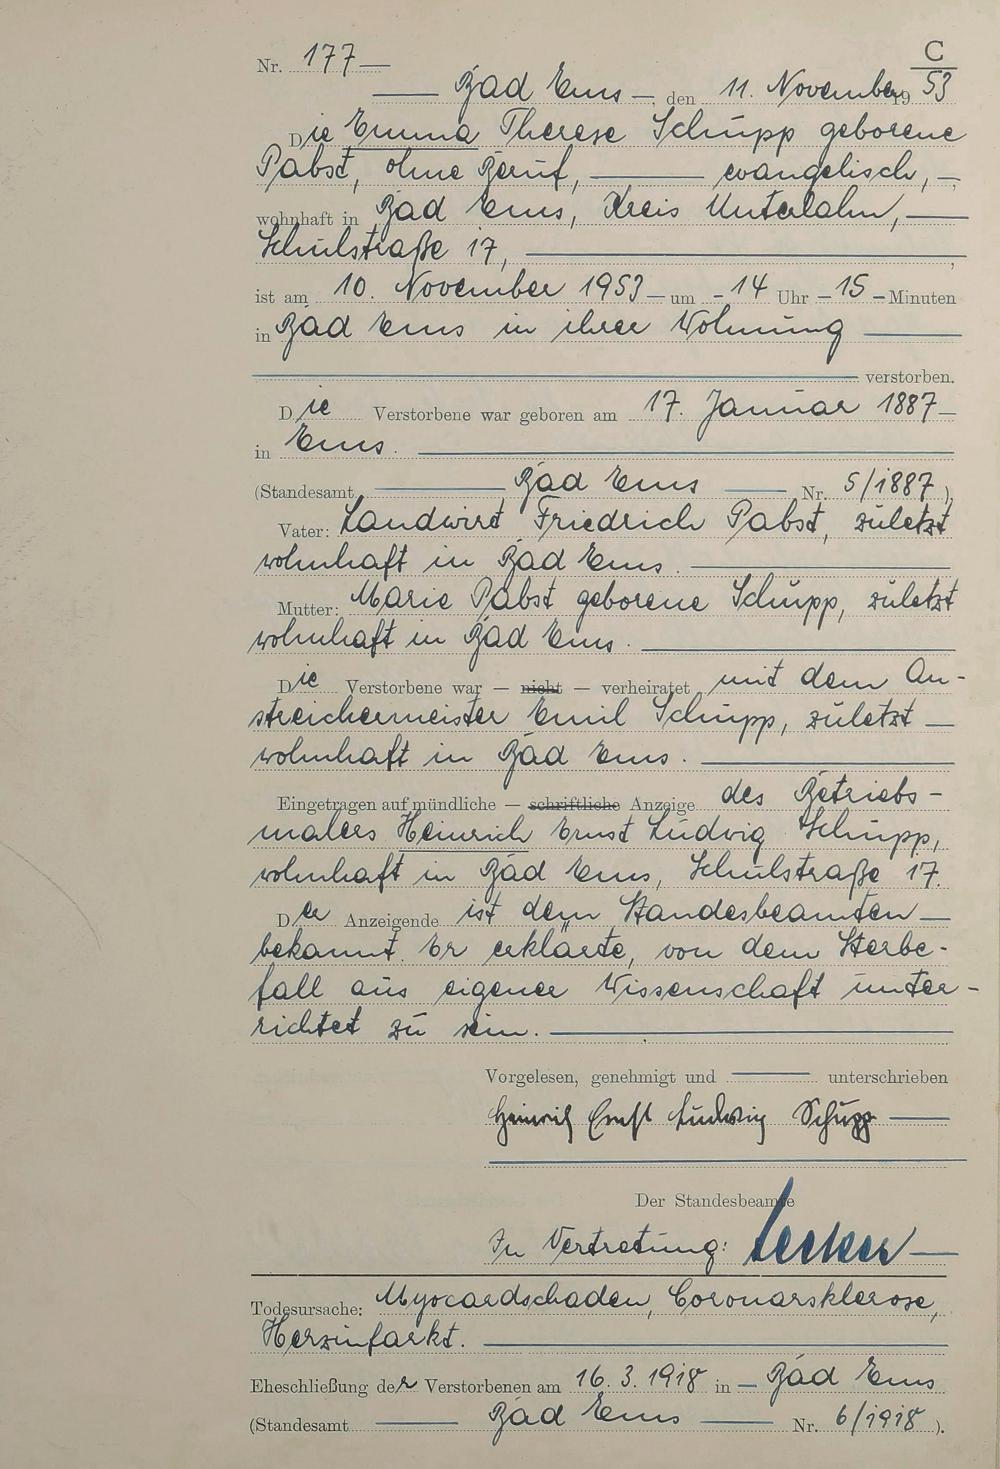 C
Nr. 177
Bad Ems, den 11. November 1953
Die Emma Therese Schupp geborene
Pabst, ohne Beruf, evangelisch,
wohnhaft in Bad Ems, Kreis Unterlahn,
Schulstraße 17,
ist am 10. November 1953 um 14 Uhr 15 Minuten
in Bad Ems in ihrer Wohnung
verstorben.
Die Verstorbene war geboren am 17. Januar 1887
in Ems.
(Standesamt Bad Ems Nr. 5/1887)
Vater: Landwirt Friedrich Pabst, zuletzt
wohnhaft in Bad Ems.
Mutter: Marie Pabst geborene Schupp, zuletzt
wohnhaft in Bad Ems.
Die Verstorbene war — nicht — verheiratet mit dem An-
streichermeister Emil Schupp, zuletzt
wohnhaft in Bad Ems.
Eingetragen auf mündliche — schriftliche Anzeige des Betriebs-
malers Heinrich Ernst Ludwig Schupp,
wohnhaft in Bad Ems, Schulstraße 17.
Der Anzeigende ist dem Standesbeamten
bekannt. Er erklärte, von dem Sterbe-
fall aus eigener Wissenschaft unter-
richtet zu sein.
Vorgelesen, genehmigt und unterschrieben
Heinrich Ernst Ludwig Schupp
Der Standesbeamte
In Vertretung:
Todesursache: Myocardschaden, Coronarsklerose,
Herzinfarkt.
Eheschließung der Verstorbenen am 16. 3. 1918 in Bad Ems
(Standesamt Bad Ems Nr. 6/1918).